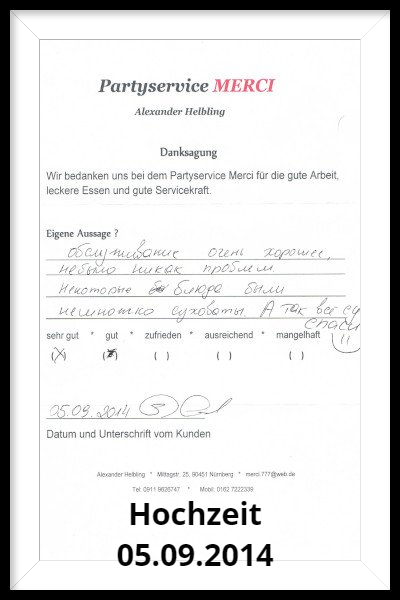 Partyservice MERCI
Alexander Helbling
Danksagung
Wir bedanken uns bei dem Partyservice Merci für die gute Arbeit,
leckere Essen und gute Servicekraft.
Eigene Aussage ?
обслуживание очень хорошее,
небыло никак проблем.
Некоторые блюда были
немножко суховаты. А так все
спаси
!!
sehr gut * gut * zufrieden * ausreichend * mangelhaft
(X) (X) ( ) ( ) ( )
05.09.2014
Datum und Unterschrift vom Kunden
Alexander Helbling * Mittagstr. 25, 90451 Nürnberg * merci.777@web.de
Tel: 0911 9626747 * Mobil: 0162 7222339
Hochzeit
05.09.2014